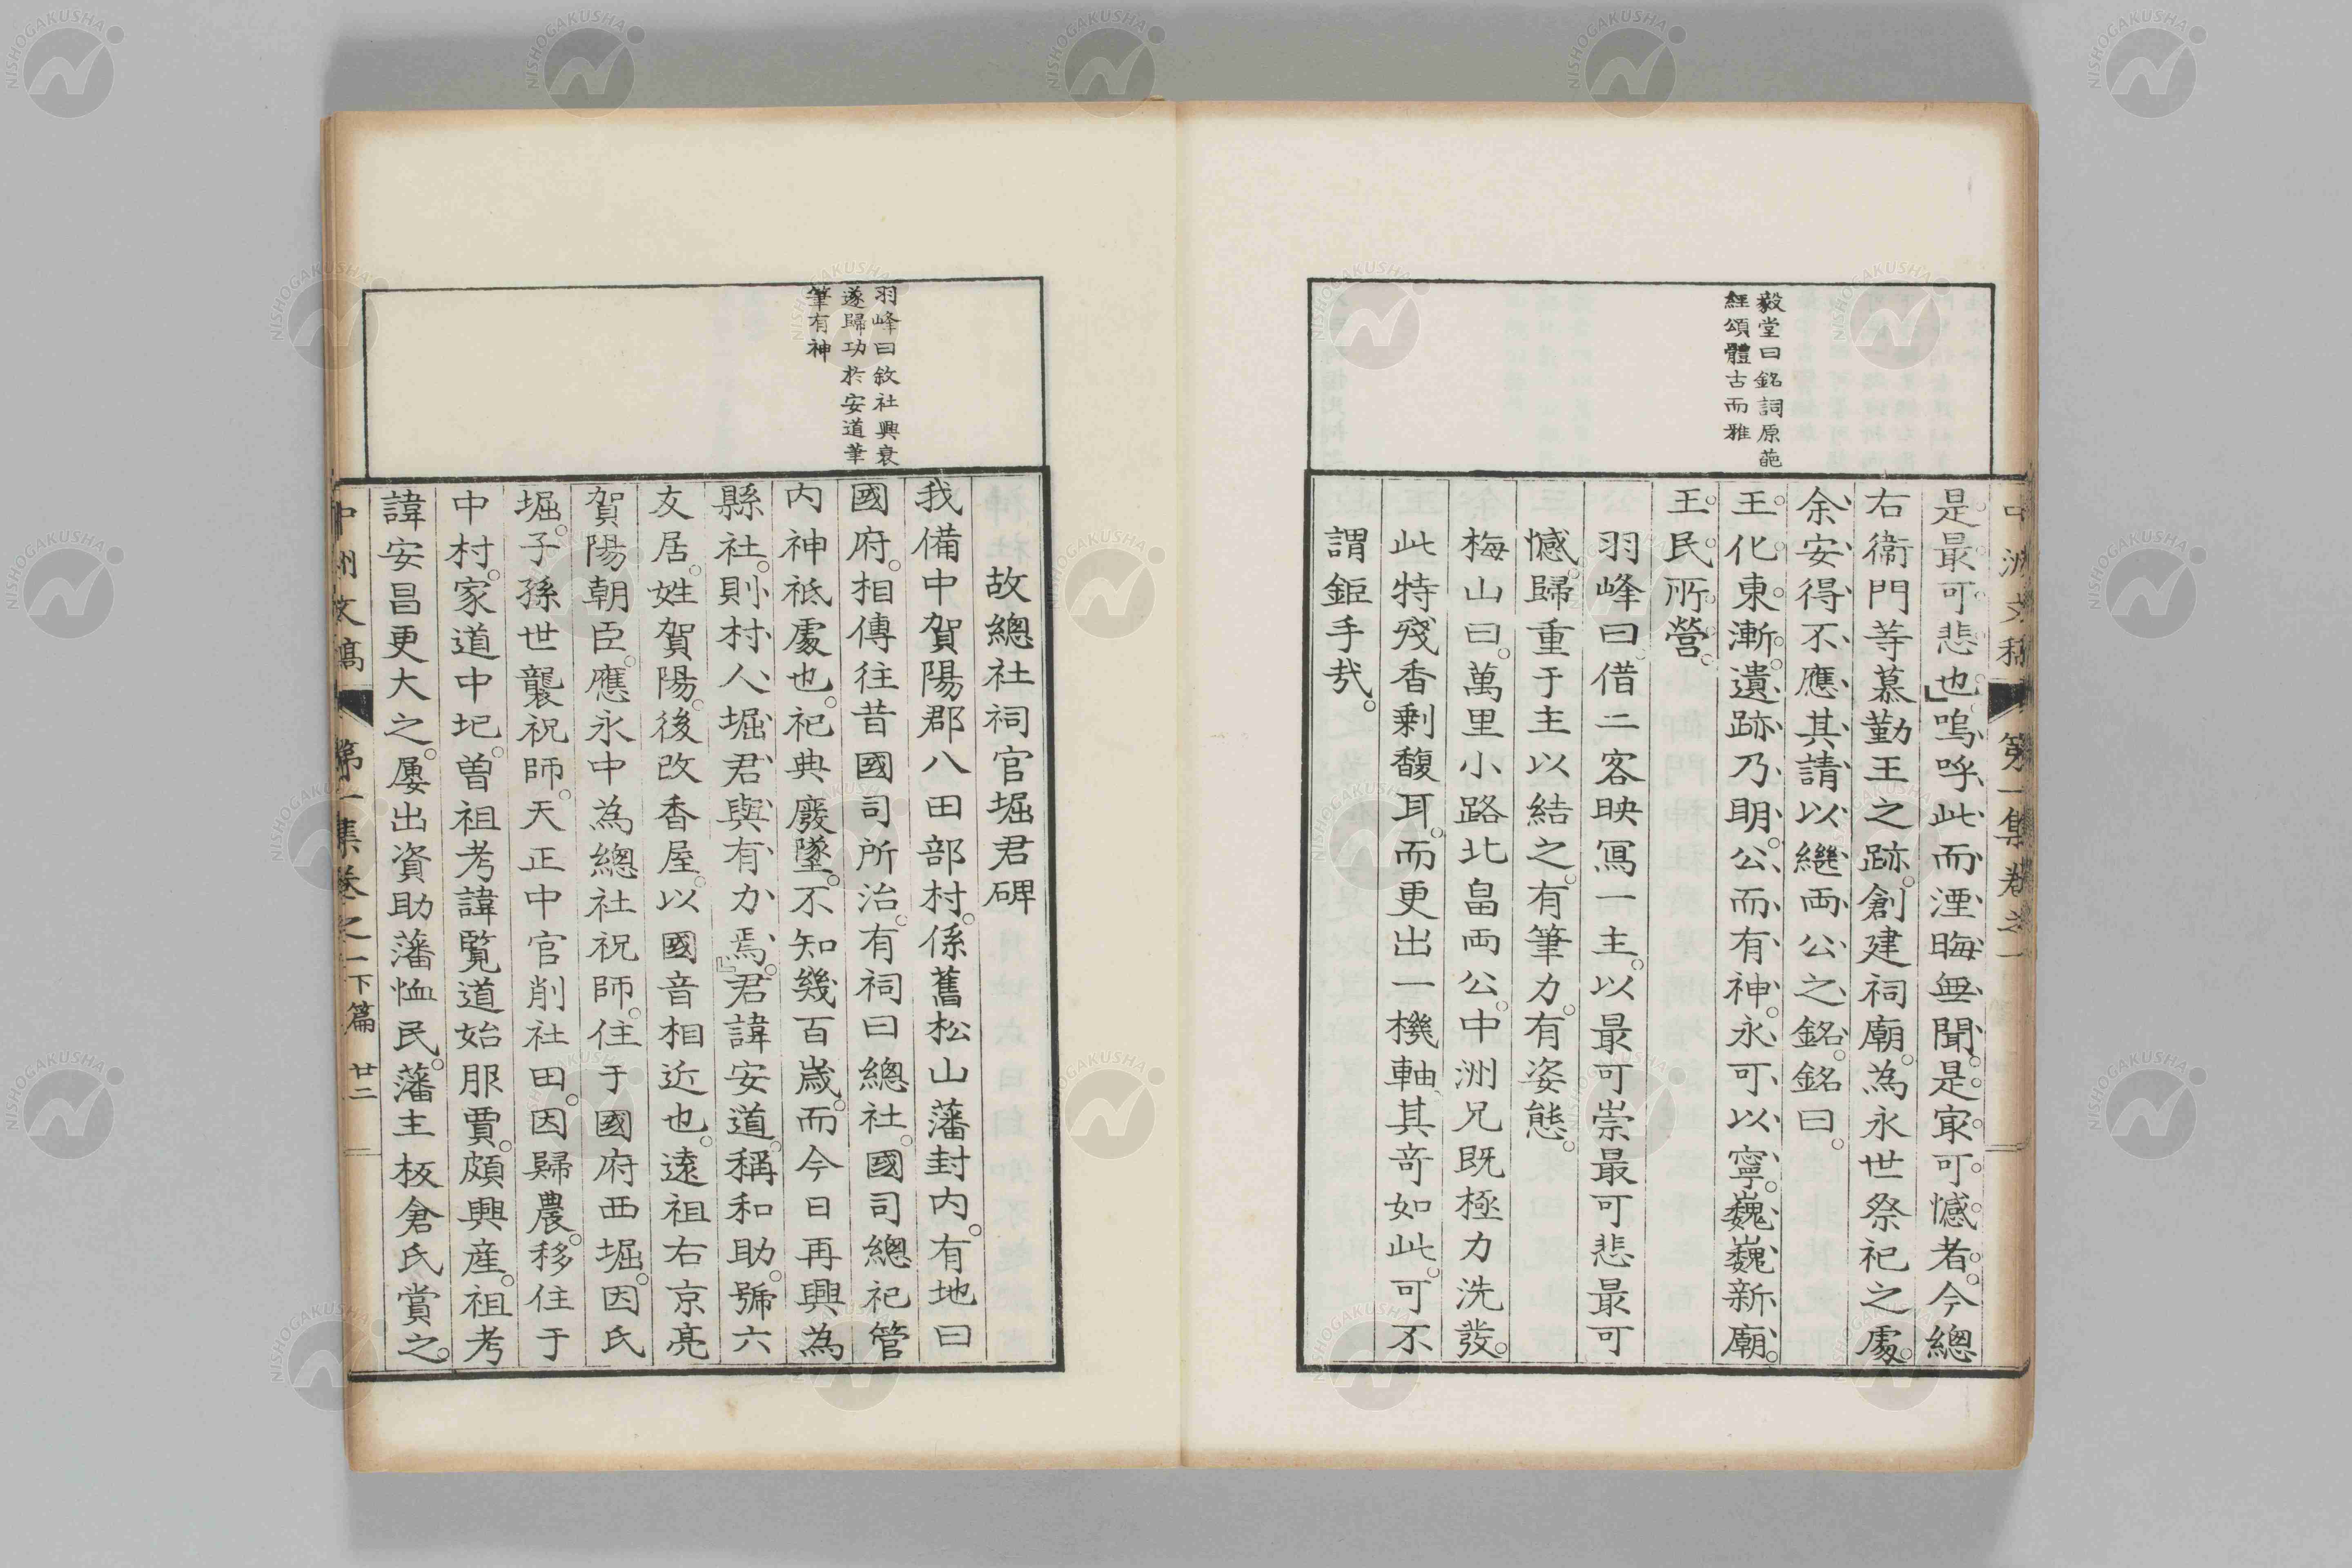 毅堂曰銘詞原葩
經頌體古而雅
是最可悲也嗚呼此而湮晦無聞是寂可憾者今總
右衞門等慕勤王之跡創建祠廟為永世祭祀之處
余安得不應其請以繼両公之銘銘曰
王化東漸遺跡乃明公而有神永可以寧巍巍新廟
王民所營
羽峰曰借二客映寫一主以最可崇最可悲最可
憾歸重于主以結之有筆力有姿態
梅山曰萬里小路北畠両公中洲兄既極力洗發
此特殘香剩馥耳而更出一機軸其奇如此可不
謂鉅手㢤
羽峰曰敘社興衰
遂歸功於安道筆
筆有神
故總社祠官堀君碑
我備中賀陽郡八田部村係舊松山藩封内有地曰
國府相傳往昔國司所治有祠曰總社國司總祀管
内神祇處也祀典廢墜不知幾百歳而今日再興為
縣社則村人堀君與有力焉君諱安道稱和助號六
友居姓賀陽後改香屋以國音相近也遠祖右京亮
賀陽朝臣應永中為總社祝師住于國府西堀因氏
堀子孫世襲祝師天正中官削社田因歸農移住于
中村家道中圮曽祖考諱覧道始服賈頗興産祖考
諱安昌更大之屢出資助藩恤民藩主板倉氏賞之
中洲文稿 第一集卷之一下篇 廿二